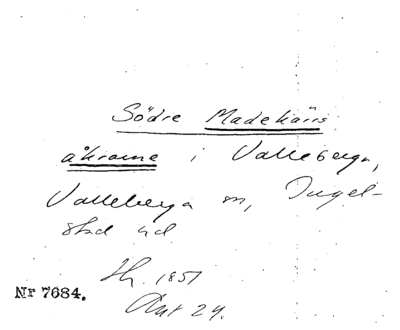 Södre Madekärrs
åkrarne i Valleberga,
Valleberga sn, Ingel-
stad hd
Sk. 1851
Akt 24.
Nr 7684.